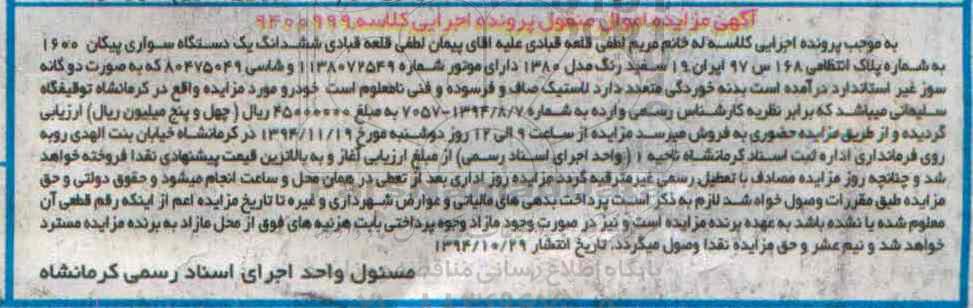 آگهی مزایده اموال منقول پرونده اجرایی کلاسه ۹۴۰۰۹۹۹
به موجب پرونده اجرایی کلاسه له خانم مریم لطفی قلعه قبادی علیه اقای پیمان لطفی قلعه قبادی ششدانگ یک دستگاه سواری پیکان ۱۶۰۰
به شماره پلاک انتظامی ۱۶۸ س ۹۷ ایران ۱۹ سفید رنگ مدل ۱۳۸۰ دارای موتور شماره ۱۱۳۸۰۷۲۵۴۹ و شاسی ۸۰۴۷۵۰۴۹ که به صورت دو گانه
سوز غیر استاندارد در آمده است بدنه خوردگی متعدد دارد لاستیک صاف و فرسوده و فنی نامعلوم است خودرو مورد مزایده واقع در کرمانشاه توقیفگاه
سلیمانی میباشد که برابر نظریه کارشناس رسمی وارده به شماره ۷۰۵۷-۱۳۹۴/۸/۷ به مبلغ ۴۵۰۰۰۰۰۰ ریال (چهل و پنج میلیون ریال) ارزیابی
گردیده و از طریق مزایده حضوری به فروش میرسد مزایده از ساعت ۹ الی ۱۲ روز دوشنبه مورخ ۱۳۹۴/۱۱/۱۹ در کرمانشاه خیابان بنت الهدی روبه
روی فرمانداری اداره ثبت اسناد کرمانشاه ناحیه ۱ (واحد اجرای اسناد رسمی) از مبلغ ارزیابی آغاز و به بالاترین قیمت پیشنهادی نقدا فروخته خواهد
شد و چنانچه روز مزایده مصادف با تعطیل رسمی غیرمترقبه گردد مزایده روز اداری بعد از تعطی در همان محل و ساعت انجام میشود و حقوق دولتی و حق
مزایده طبق مقررات وصول خواه شد لازم به ذکر است پرداخت بدهی های مالیاتی و عوارض شهرداری و غیره تا تاریخ مزایده اعم از اینکه رقم قطعی آن
معلوم شده یا نشده باشد به عهده برنده مزایده است و نیز در صورت وجود مازاد وجوه پرداختی بابت هزینه های فوق از محل مازاد به برنده مزایده مسترد
خواهد شد و نیم عشر و حق مزایده نقدا وصول میگردد. تاریخ انتشار ۱۳۹۴/۱۰/۲۹
مسئول واحد اجرای اسناد رسمی کرمانشاه
پایگاه اطلاع رسانی